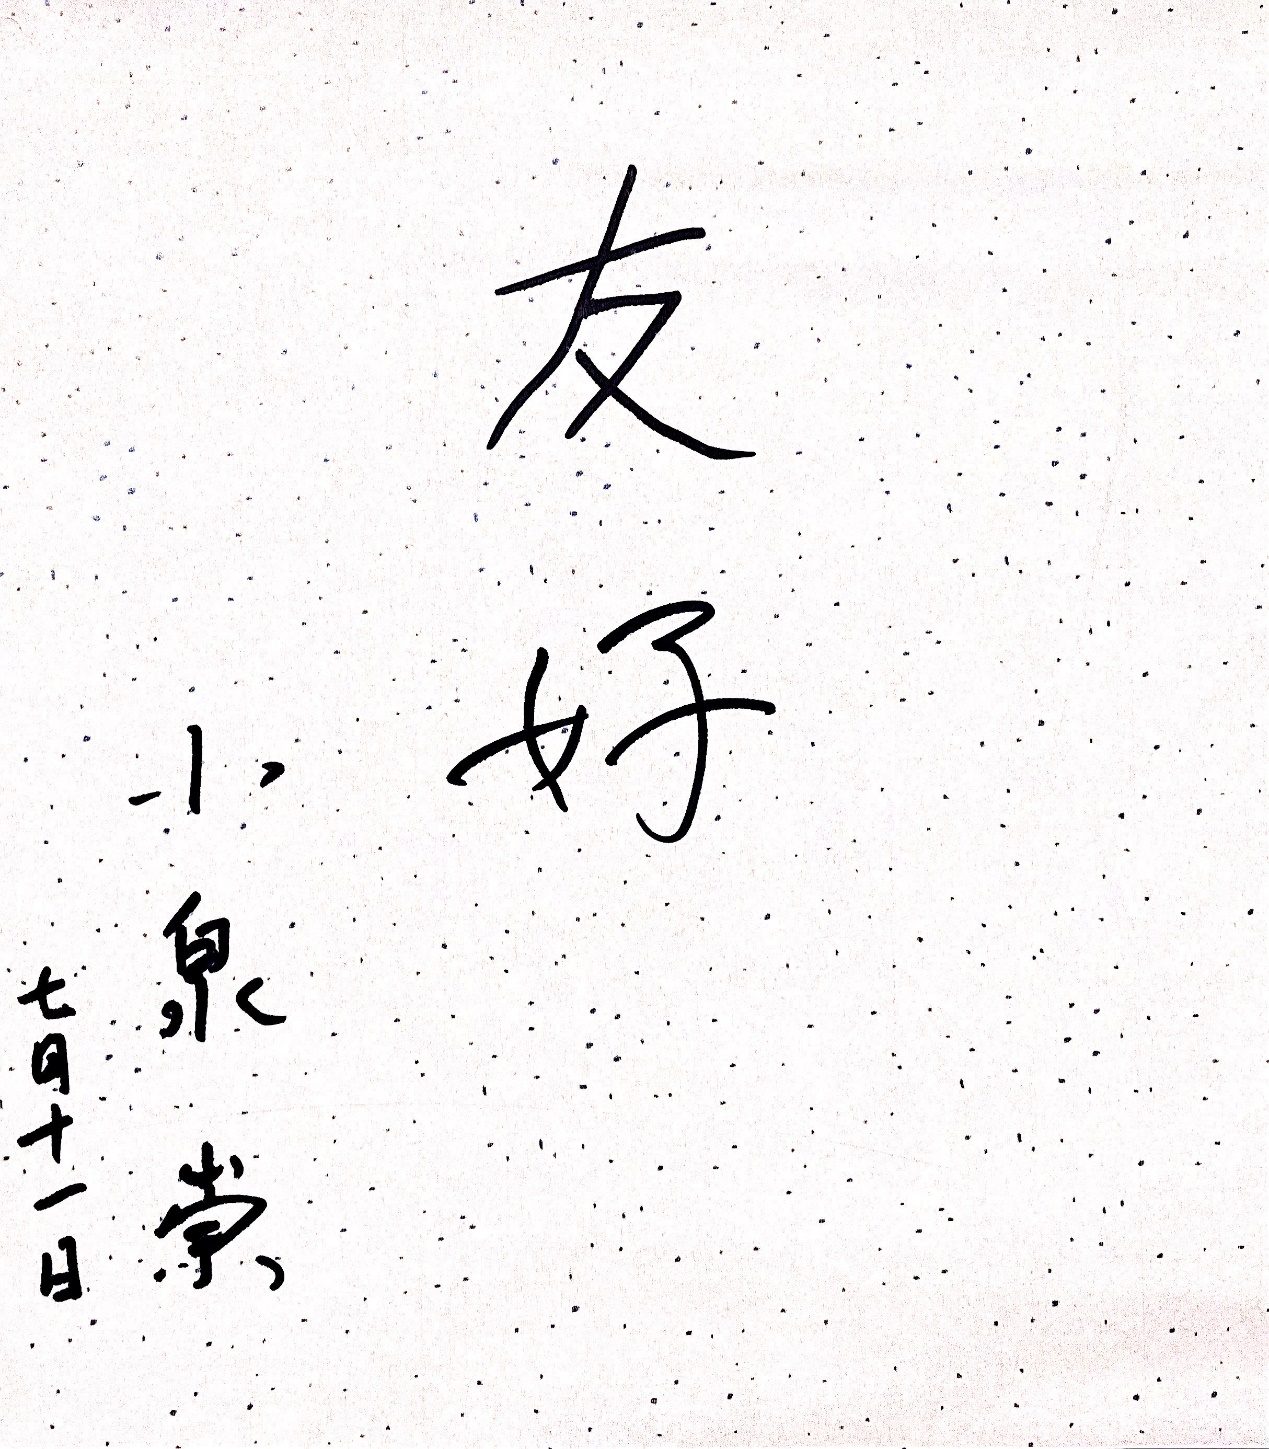 友好
小泉崇
七月十一日